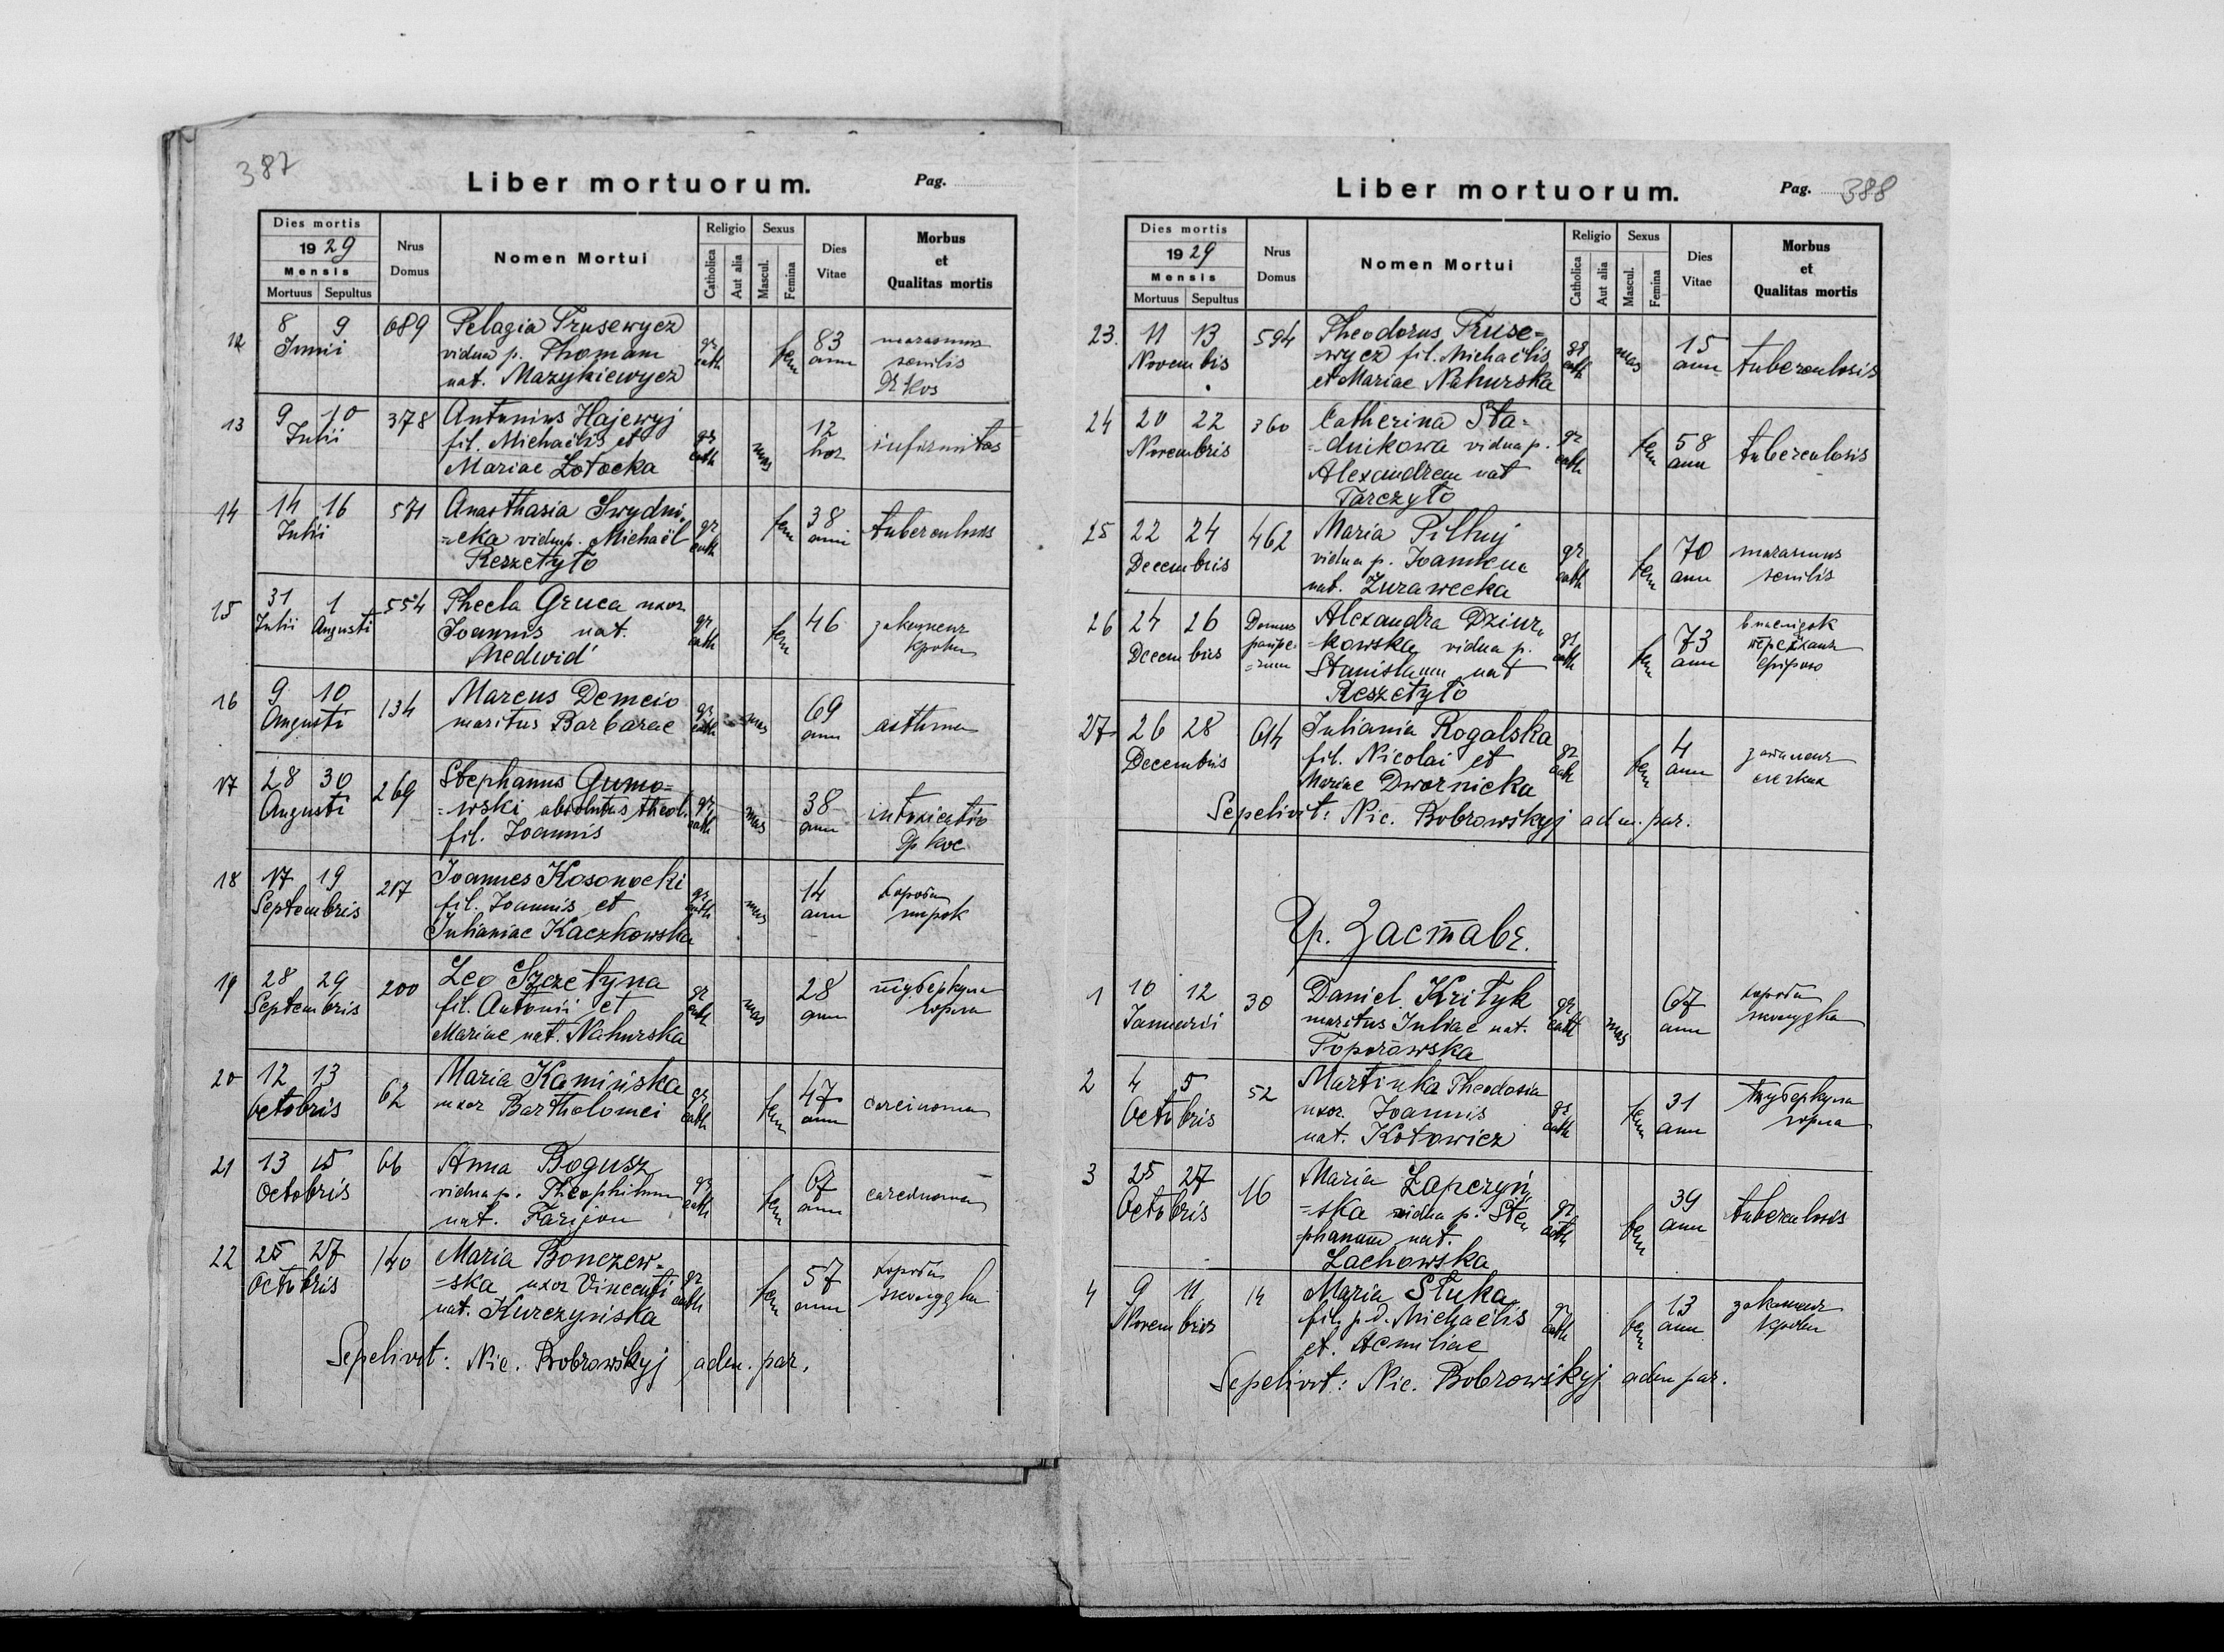 387
Liber mortuorum.
Pag.
Dies mortis
1929
Mensis
Mortuus Sepultus
Nrus Domus
Nomen Mortui
Religio
Catholica
Aut alia
Sexus
Mascul.
Femina
Dies Vitae
Morbus et Qualitas mortis
12 8 9 689 Pelagia Trusewycz gr fem 83 marasmus
Junii vidua p. Thomam cath ann senilis
nat. Mazykiewycz
13 9 10 378 Antonius Hajewyj gr mas 12 infirmitas
Julii fil. Michaëlis et cath hor
Mariae Łotocka
14 14 16 571 Anasthasia Swydni- gr fem 38 tuberculosis
Julii =cka vidua p. Michaël cath ann
Reszetyło
15 31 1 554 Thecla Gruca uxor gr fem 46
Julii Augusti Joannis nat. cath крови
Medwid'
16 9 10 134 Marcus Demcio gr mas 69 asthma
Augusti maritus Barbarae cath ann
17 28 30 269 Stephanus Gumo= gr mas 38 intoxicatio
Augusti =wski absolutus theol. cath ann
fil. Joannis
18 17 19 217 Joannes Kosonocki gr mas 14 хороба
Septembris fil. Joannis et cath ann нирок
Julianiae Kaczkowska
19 28 29 200 Leo Szczetyna gr mas 28 туберкульо
Septembris fil. Antonii et cath ann
Mariae nat. Nahurska
20 12 13 62 Maria Kamińska gr fem 47 carcinoma
Octobris uxor Bartholomei cath ann
21 13 15 66 Anna Bogusz gr fem 67 carcinoma
Octobris vidua p. Theophilum cath ann
nat. Farijon
22 25 27 140 Maria Bonczew- gr fem 57 хороба
Octobris =ska uxor Vincenti cath ann жолудка
nat. Kurczyńska
Sepelivit: Nic. Bobrowśkyj adm. par.
Liber mortuorum.
Pag. 388
Dies mortis
1929
Mensis
Mortuus Sepultus
Nrus Domus
Nomen Mortui
Religio
Catholica
Aut alia
Sexus
Mascul.
Femina
Dies Vitae
Morbus et Qualitas mortis
23. 11 13 594 Theodorus Truse= gr mas 15 tuberculosis
Novembis wycz fil. Michaëlis cath ann
et Mariae Nahurska
24 20 22 360 Catherina Sta= gr fem 58 tuberculosis
Novembris =dnikowa vidua p. cath ann
Alexandrem nat
Tarczyło
25 22 24 462 Maria Pilhuj gr fem 70 marasmus
Decembris vidua p. Joannem cath ann senilis
nat. Żurawecka
26 24 26 Domus Alexandra Dziur„ gr fem 73 внаслідок
Decembris paupe =kowska vidua p. cath ann
=rum Stanislaum nat
Reszetyło
27 26 28 614 Juliania Rogalska gr fem 4
Decembris fil. Nicolai et cath ann
Mariae Dwornicka
Sepelivit: Nic. Bobrowśkyj adm. par.
Гр. Заставє.
1 10 12 30 Daniel Krityk gr mas 67 хороба
Januarii maritus Juliae nat. cath ann жолудка
Toporowska
2 4 5 52 Martinka Theodosia gr fem 31 туберкульо
Octobris uxor Joannis cath ann
nat. Kotowicz
3 25 27 16 Maria Łapczyń„ gr fem 39 tuberculosis
Octobris =ska vidua p. Ste„ cath ann
phanum nat.
Lachowska
4 9 11 14 Maria Słuka gr fem 13
Novembris fil. p. d. Michaëlis cath ann крови
et. Aemiliae
Sepelivit: Nic. Bobrowśkyj adm par.